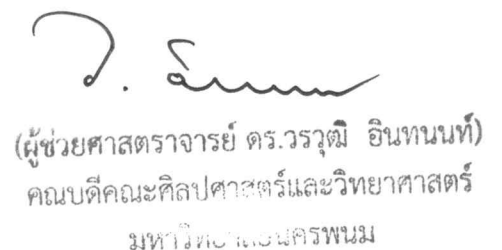 (ผู้ช่วยศาสตราจารย์ ดร.วรวุฒิ อินทนนท์)
คณบดีคณะศิลปศาสตร์และวิทยาศาสตร์
มหาวิทยาลัยนครพนม